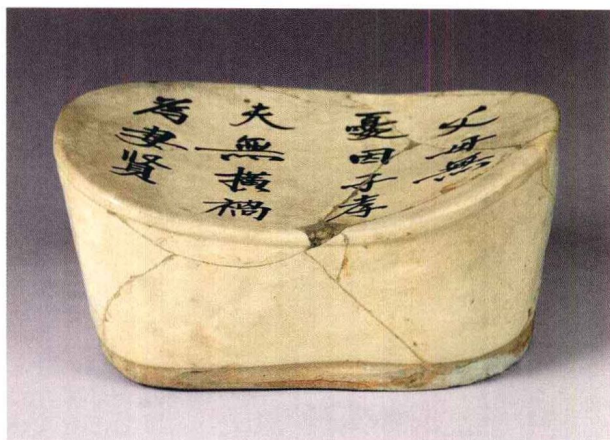 父母無
憂因子孝
夫無横禍
為妻賢